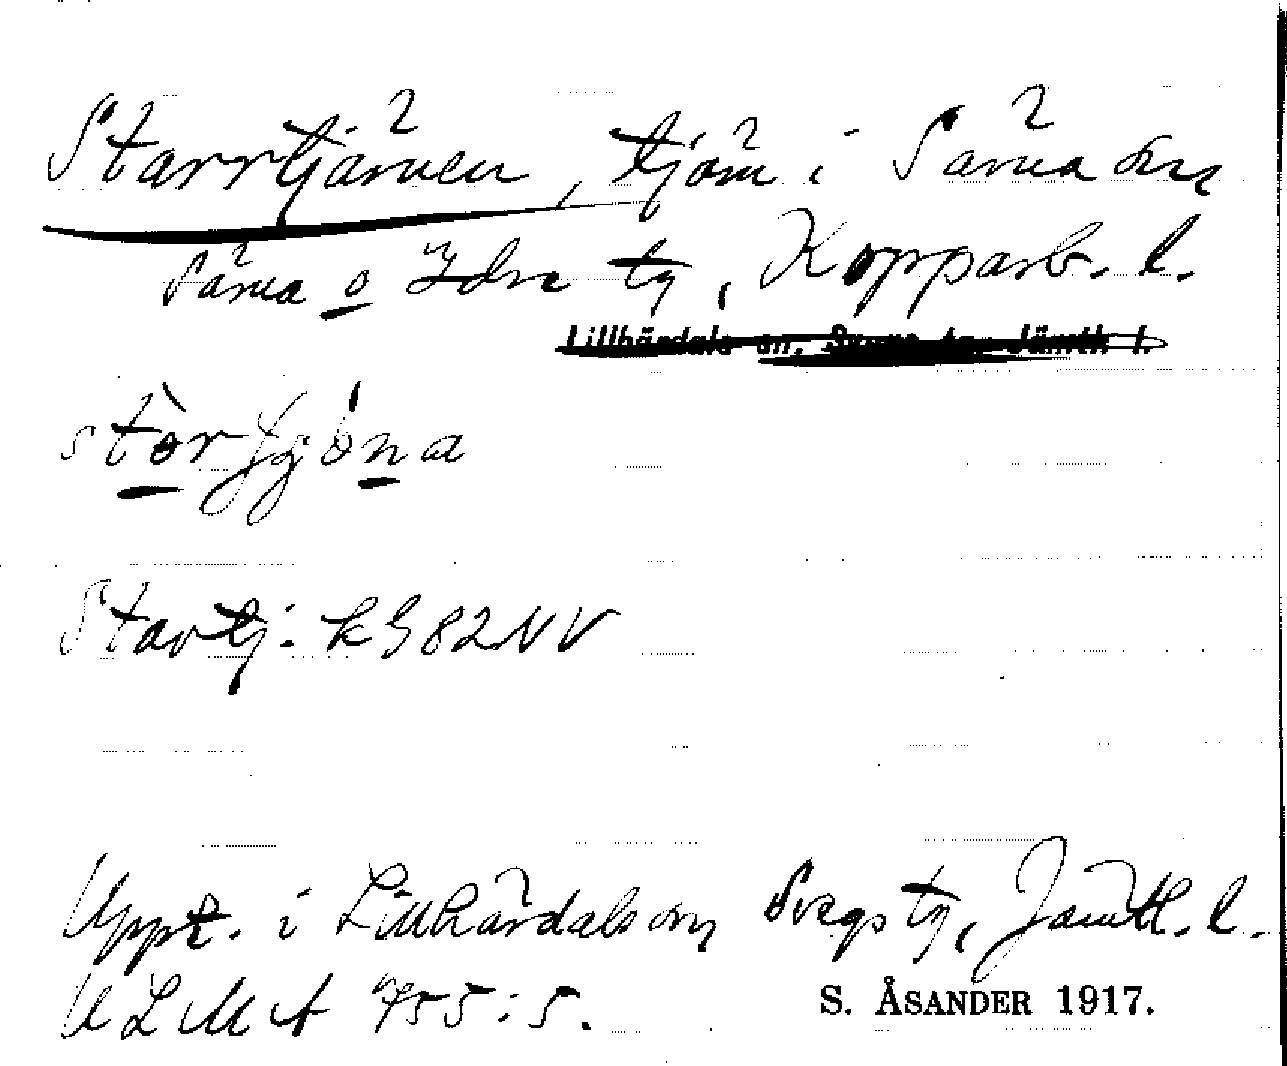 Starrtjärnen, tjärn i Särna sn
Särna o Idre tg, Kopparb. l.
Lillhärdals sn, Svegs tg, Jämtl. l.
Startj. k 982NV
Uppt. i Lillhärdals sn, Svegs tg, Jämtl. l.
ULMA 755:5.
S. ÅSANDER 1917.